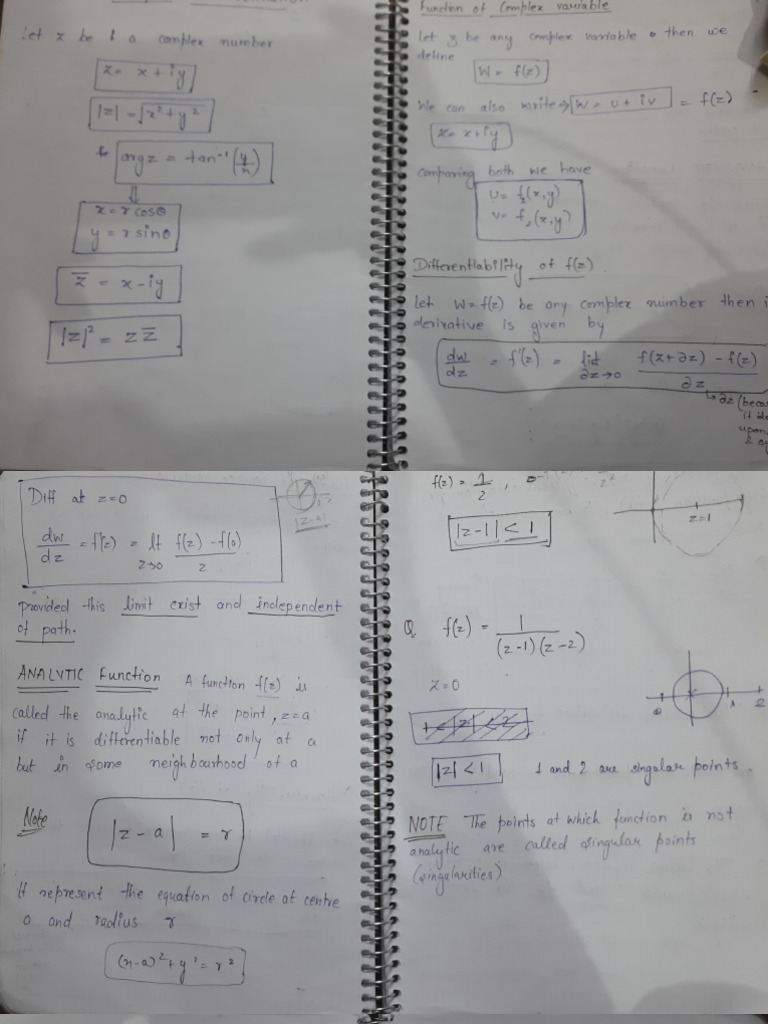 Let z be a complex number
z = x + iy
|z| = √x² + y²
arg z = tan⁻¹(y/x)
⇓
x = r cosθ
y = r sinθ
z̅ = x - iy
|z|² = z z̅
Function of Complex variable
Let z be any complex variable then we
define
W = f(z)
We can also write → W = u + iv = f(z)
z = x + iy
Comparing both we have
u = f₁(x,y)
v = f₂(x,y)
Differentiability of f(z)
Let W = f(z) be any complex number then
derivative is given by
dw/dz = f'(z) = lit ∂z→0 f(z+∂z) - f(z) / ∂z
↳ ∂z (
upon
Diff at z=0
dw/dz = f'(z) = lt z→0 f(z) - f(0) / z
|z-a|
provided this limit exist and independent
of path.
ANALYTIC Function A function f(z) is
called the analytic at the point, z=a
if it is differentiable not only at a
but in some neighbourhood of a
Note
|z - a| = r
It represent the equation of circle at centre
a and radius r
(x-a)² + y² = r²
f(z) = 1/z ,
|z-1| < 1
z=1
Q. f(z) = 1/(z-1)(z-2)
z=0
0 1 2
1<|z|<2
|z| < 1 1 and 2 are singular points.
NOTE The points at which function is not
analytic are called singular points
(singularities)